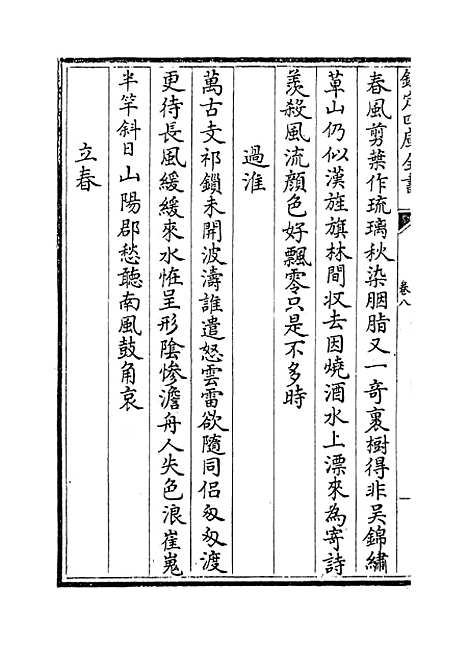 欽定四庫全書
卷八
春風剪葉作琉璃秋染胭脂又一奇裹樹得非吳錦繡
草山仍似漢旌旗林間収去因燒酒水上漂來為寄詩
羨殺風流顔色好飄零只是不多時
過淮
萬古支祁鎖未開波濤誰遣怒雲雷欲隨同侣匆匆渡
更待長風緩緩來水恠呈形隂慘澹舟人失色浪崔嵬
半竿斜日山陽郡愁聽南風鼓角哀
立春